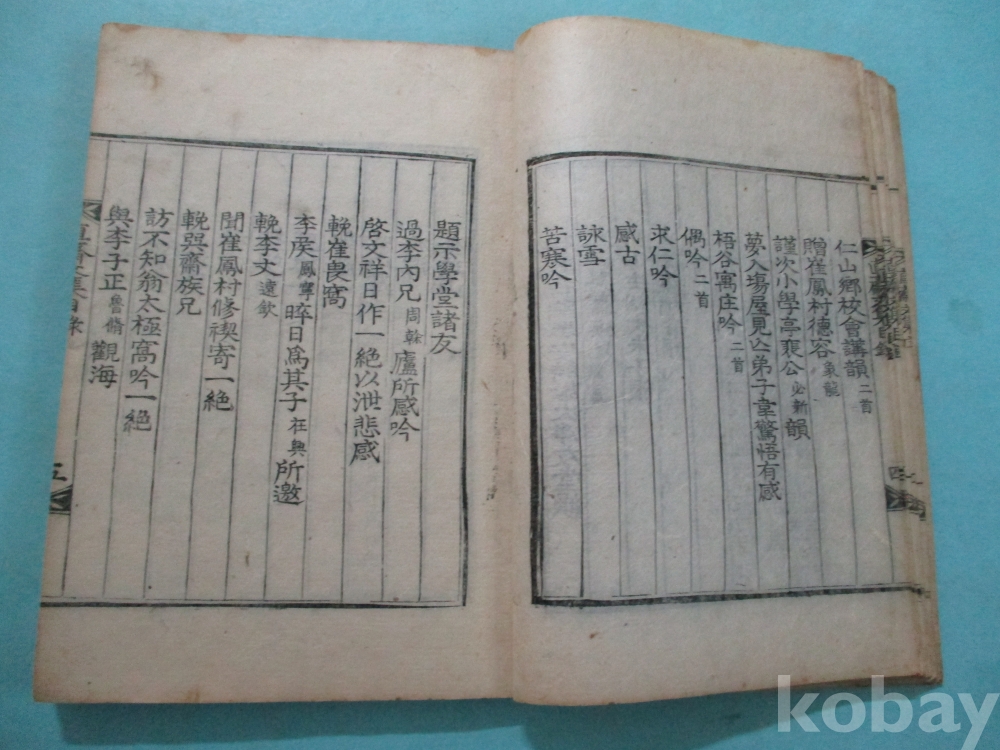 仁山鄉校會講韻二首
贈崔鳳村德容象龍
謹次小學亭裵公必新韻
夢入塲屋見亾弟子韋驚悟有感
梧谷寓庄吟二首
偶吟二首
求仁吟
感古
詠雪
苦寒吟
四
題示學堂諸友
過李內兄周榦廬所感吟
啓文祥日作一絶以泄悲感
輓崔畏窩
李侯鳳寧晬日爲其子在奐所邀
輓李丈遠欽
聞崔鳳村修禊寄一絶
輓巽齋族兄
訪不知翁太極窩吟一絶
與李子正魯脩觀海
目录
三
kobay